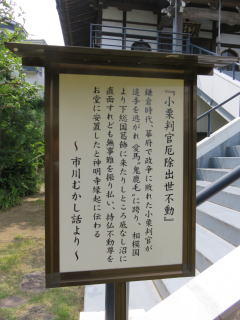 『小栗判官厄除出世不動』
鎌倉時代、幕府で政争に敗れた小栗判官が
追手を逃がれ愛馬"鬼鹿毛"に跨り、相模国
より下総国葛飾に来たりしところ底なし沼に
直面すれども無事難を振り払い、持仏不動尊を
お堂に安置したと神明寺縁起に伝わる
～市川むかし話より～